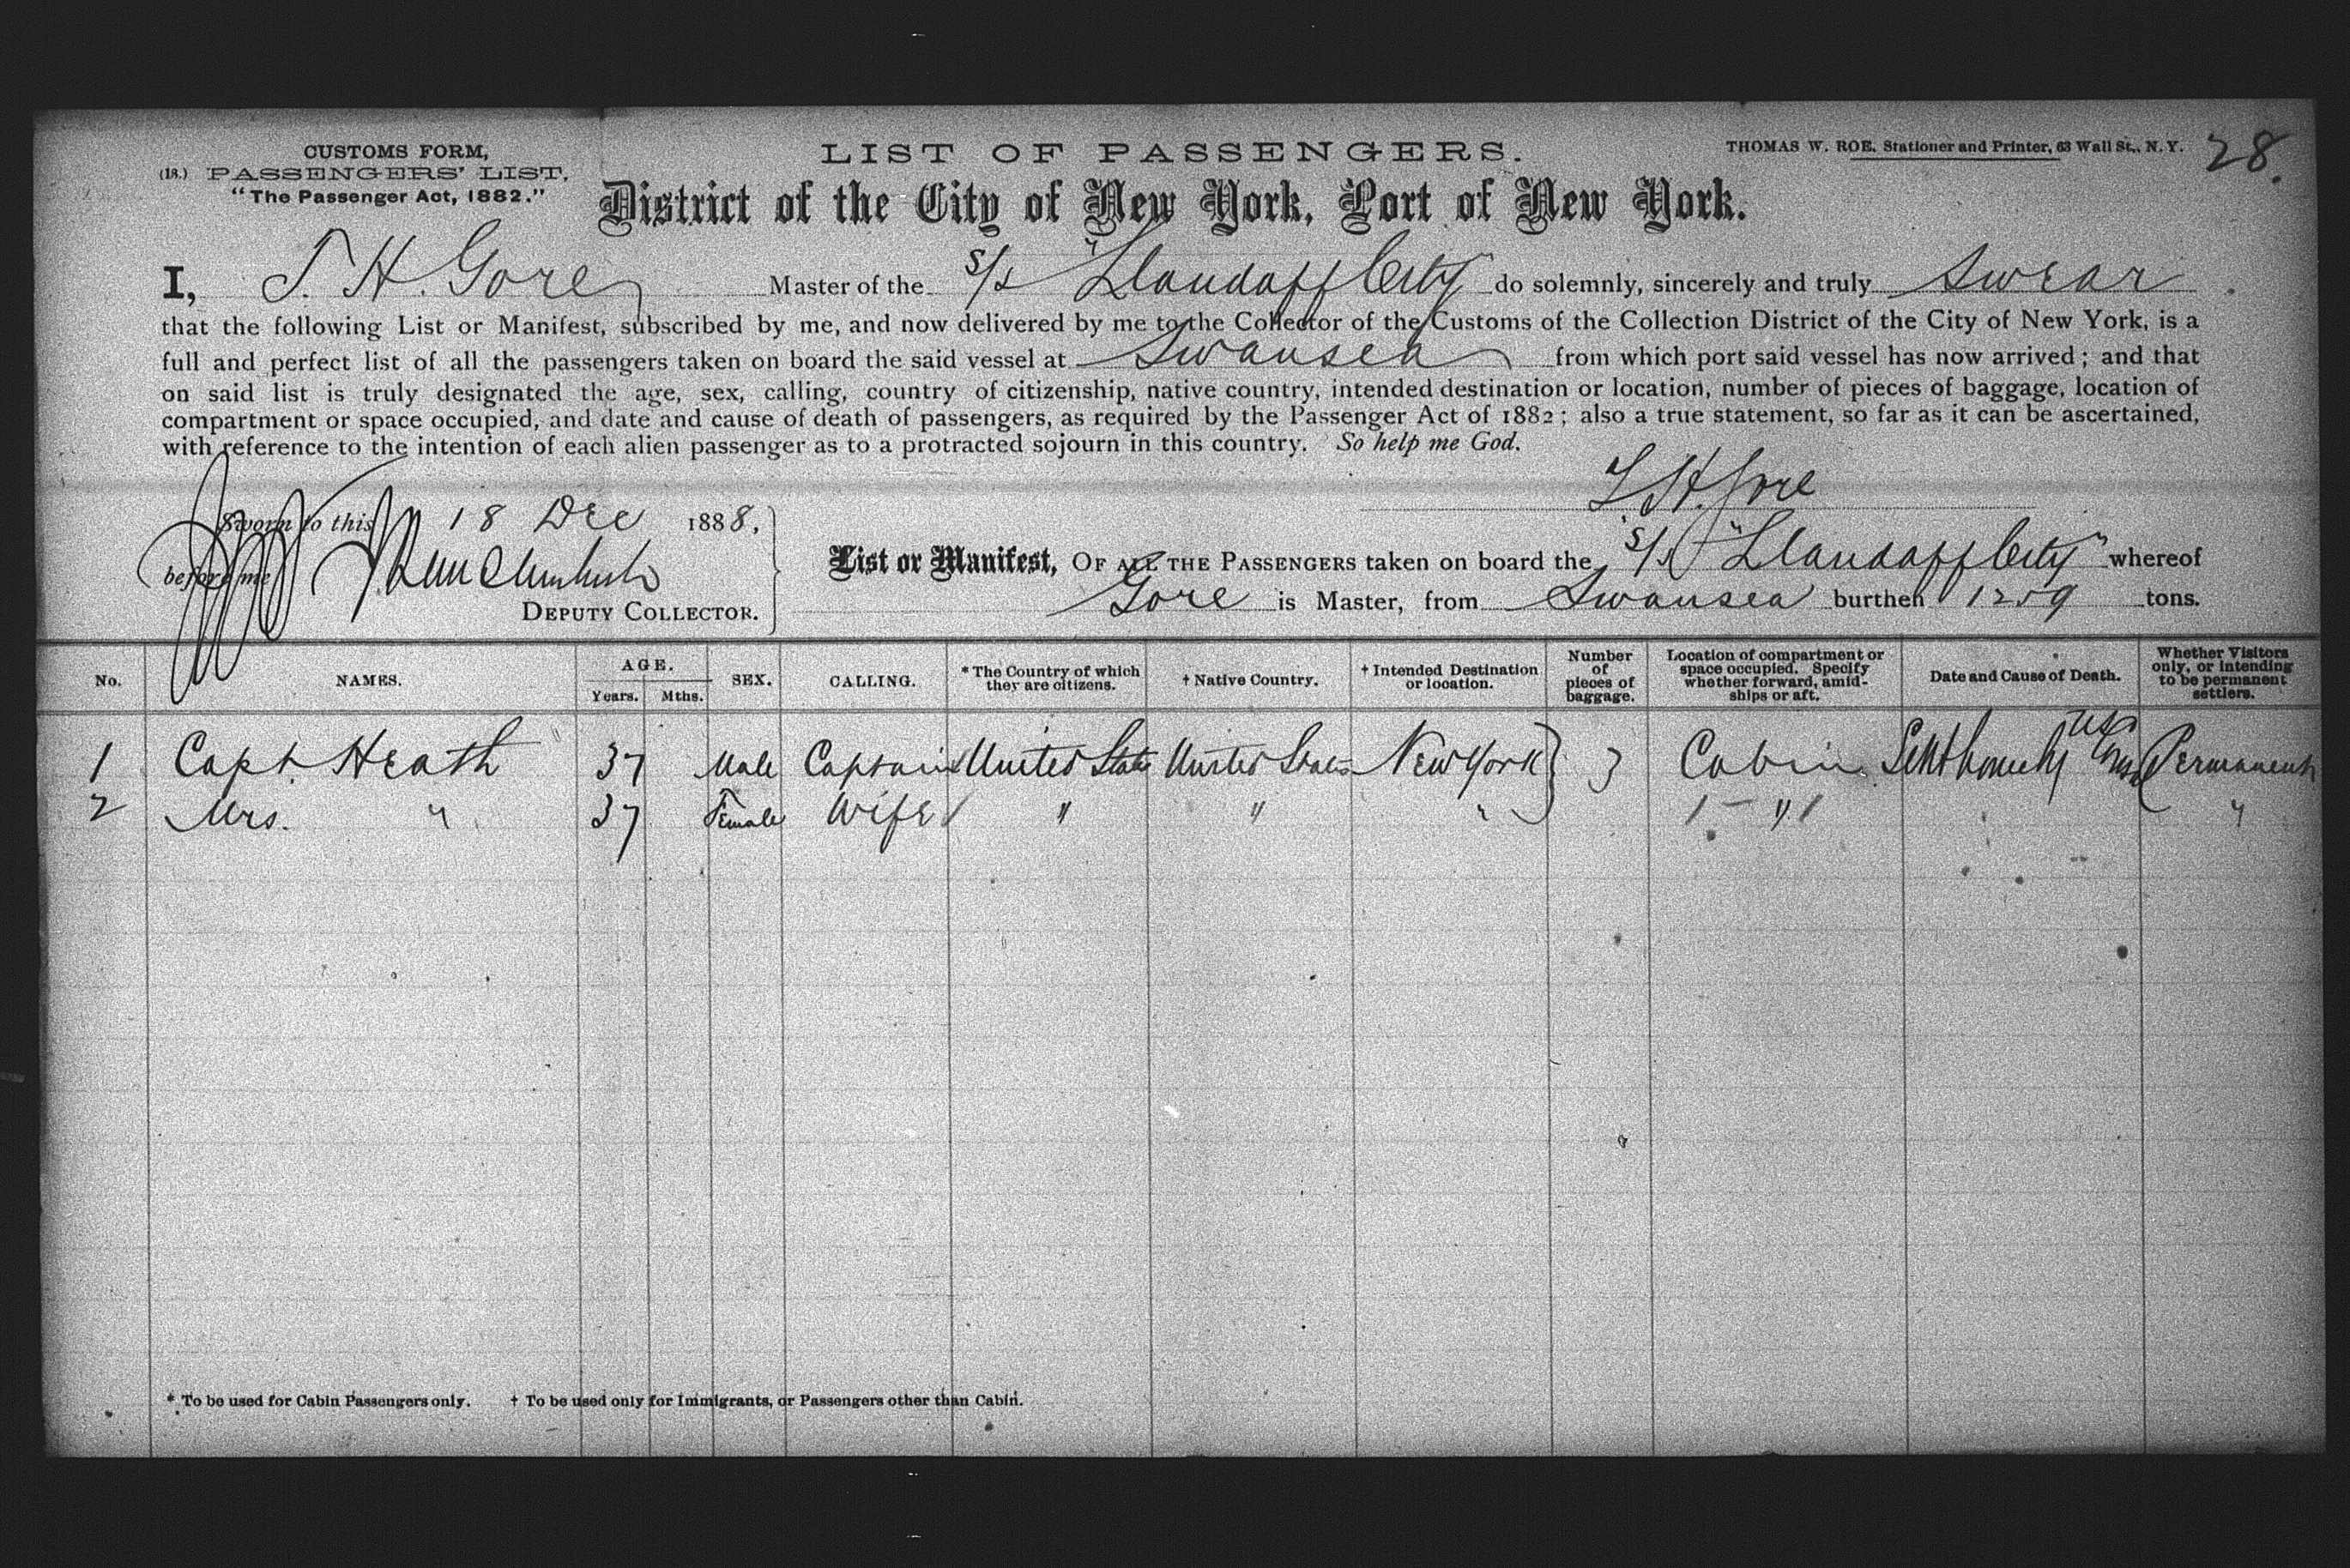 CUSTOMS FORM,
(18.) PASSENGERS' LIST.
"The Passenger Act, 1882."
LIST OF PASSENGERS.
THOMAS W. ROE, Stationer and Printer, 63 Wall St., N. Y.
28.
District of the City of New York, Port of New York.
I, T. H. Gore Master of the S/s "Llandaff City" do solemnly, sincerely and truly swear
that the following List or Manifest, subscribed by me, and now delivered by me to the Collector of the Customs of the Collection District of the City of New York, is a
full and perfect list of all the passengers taken on board the said vessel at Swansea from which port said vessel has now arrived; and that
on said list is truly designated the age, sex, calling, country of citizenship, native country, intended destination or location, number of pieces of baggage, location of
compartment or space occupied, and date and cause of death of passengers, as required by the Passenger Act of 1882; also a true statement, so far as it can be ascertained,
with reference to the intention of each alien passenger as to a protracted sojourn in this country. So help me God.
T H Gore
Sworn to this 18 Dec 1888,
before me
DEPUTY COLLECTOR.
List or Manifest, OF ALL THE PASSENGERS taken on board the S/s "Llandaff City" whereof
Gore is Master, from Swansea burthen 1259 tons.
No. NAMES. AGE. Years. Mths. SEX. CALLING. * The Country of which they are citizens. † Native Country. † Intended Destination or location. Number of pieces of baggage. Location of compartment or space occupied. Specify whether forward, amidships or aft. Date and Cause of Death. Whether Visitors only, or intending to be permanent settlers.
1 Capt. Heath 37 Male Captain United States United States New York } 3 Cabin Permanent
2 Mrs. " 37 Female Wife " " " " "
* To be used for Cabin Passengers only. † To be used only for Immigrants, or Passengers other than Cabin.